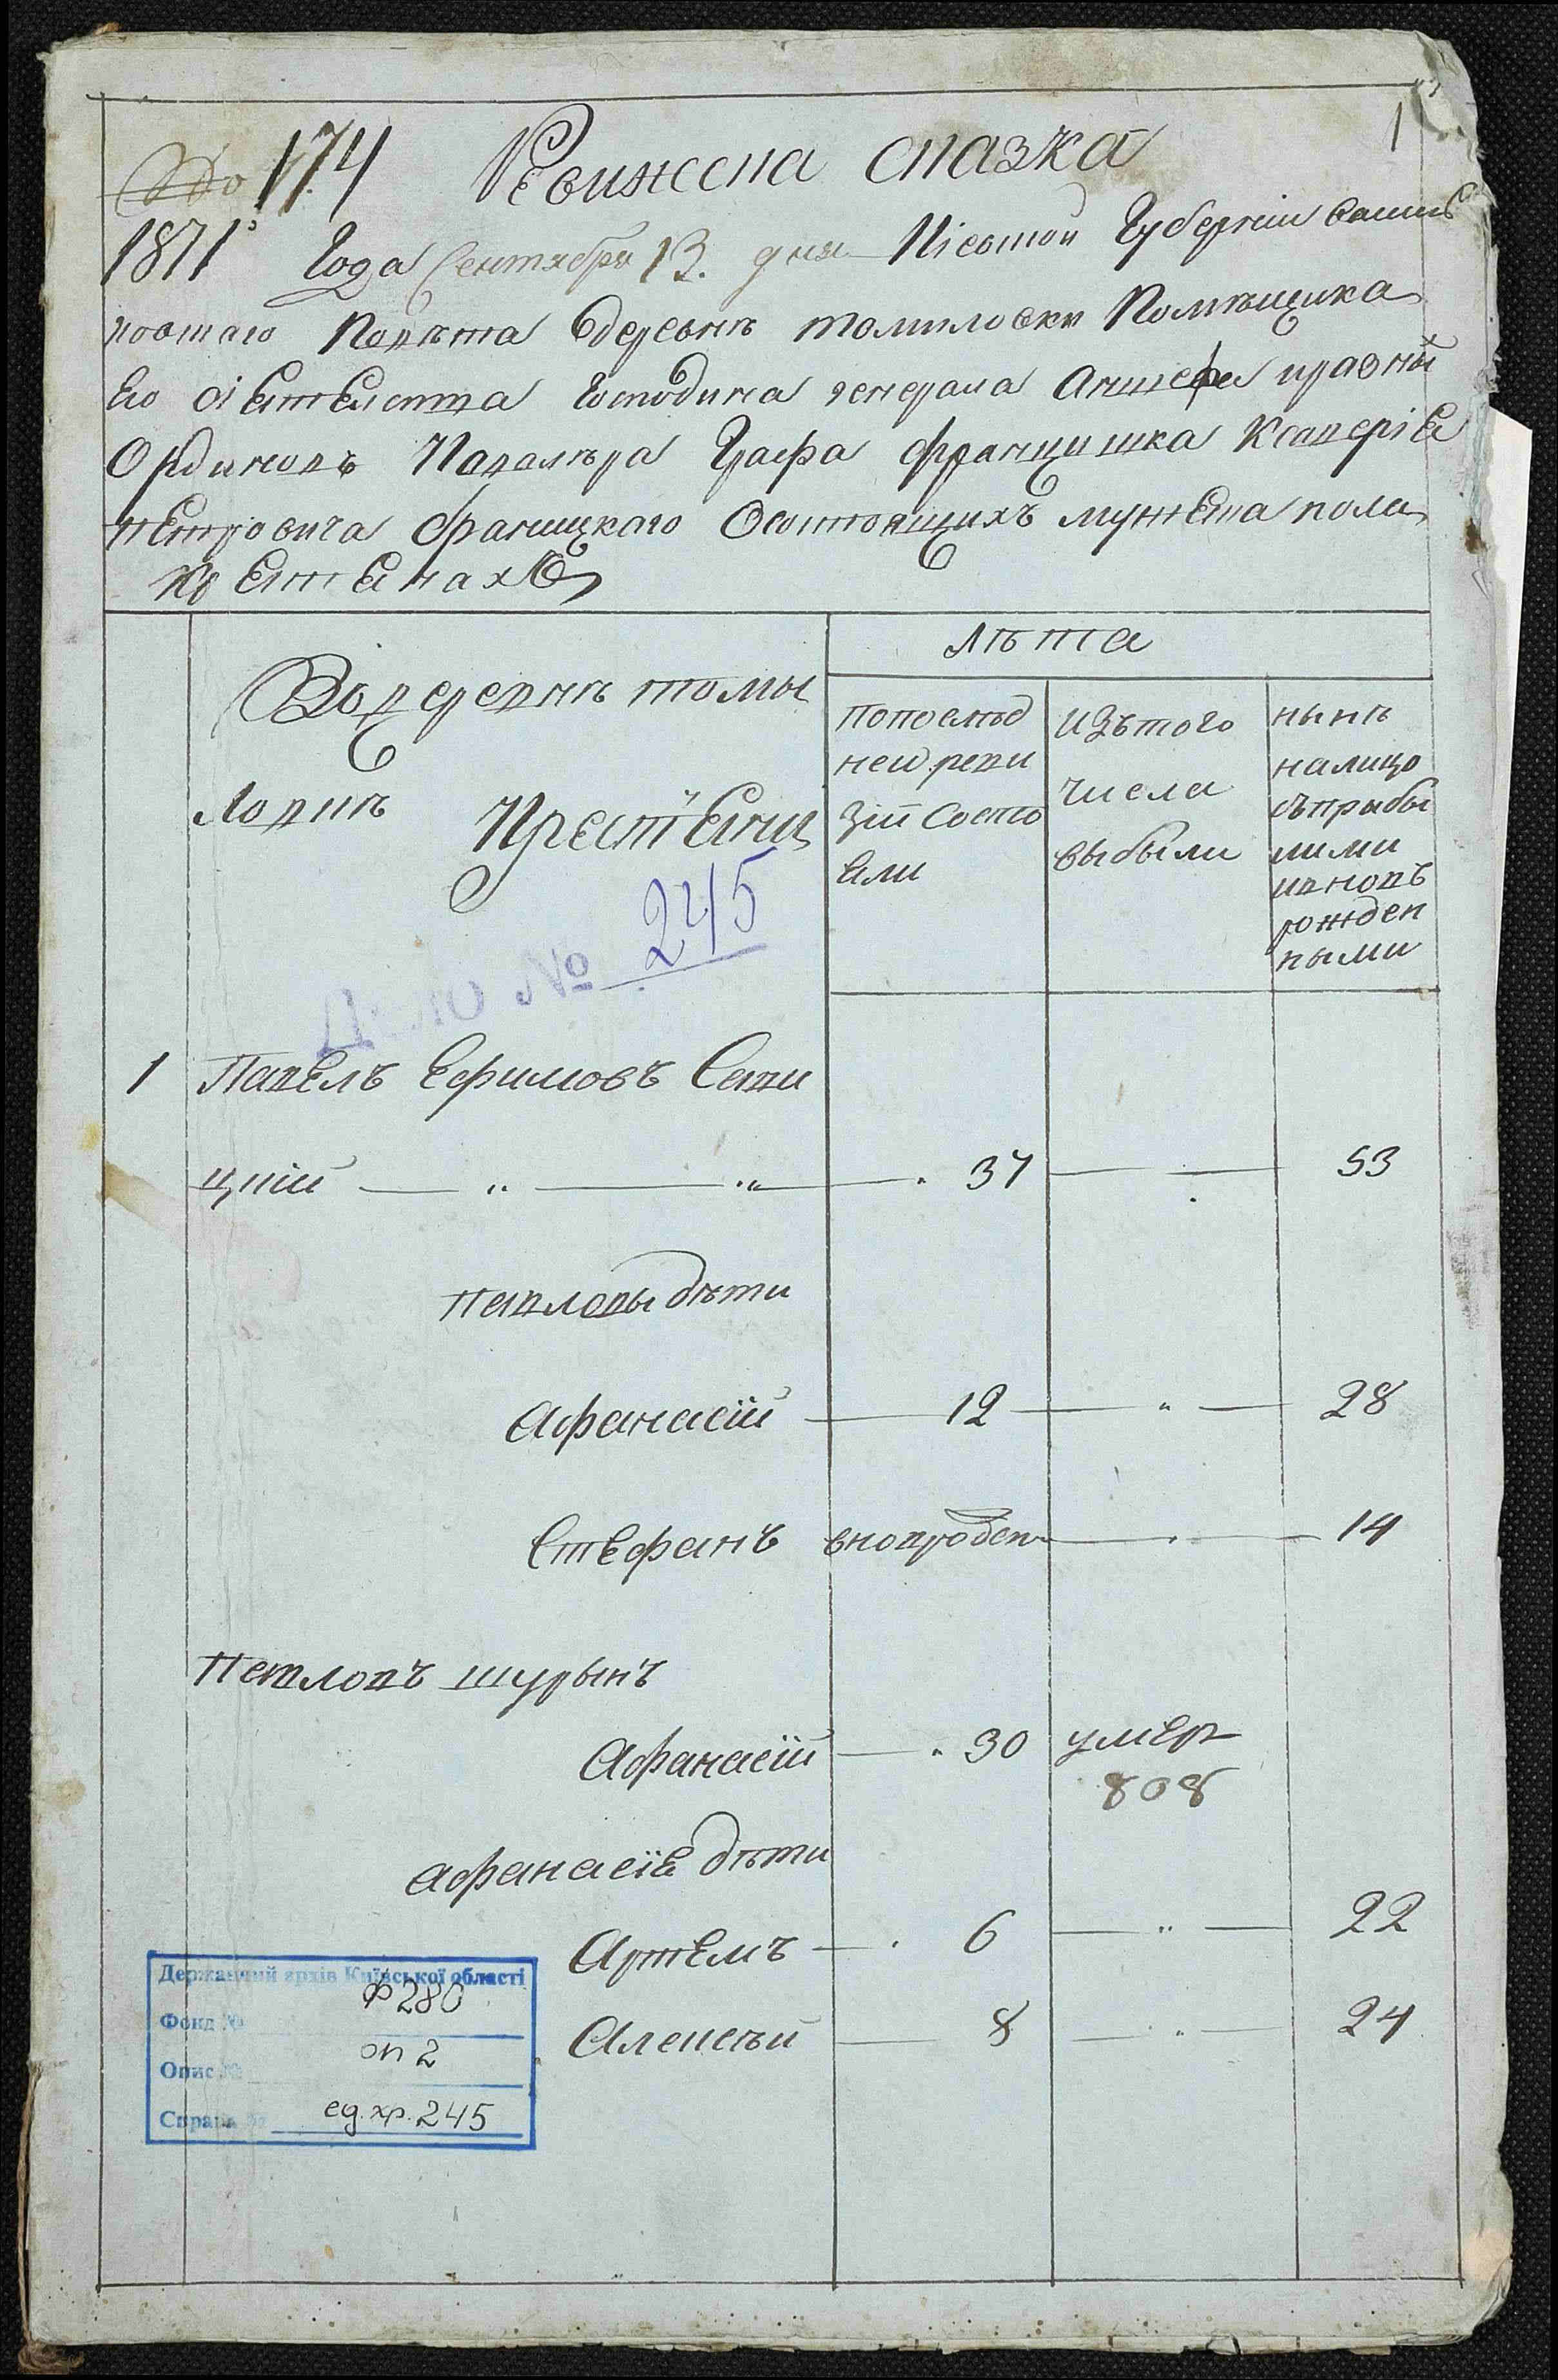 174 Ревижсспа сказка
1
1811 Года Сентября 13. дня Кіевшой Губерніи василь
ковшаго Повѣта Вдеревнѣ томиловки Помѣщика
Его сіятелства Господина генерала Аншефа иразны
Ординовъ Каволѣра Графа францишка Ксаверіа
петровича браницкаго Осостоящихъ мужеска пола
крестянахъ
Въ деревнѣ томы
ловкѣ Крестяни
лѣта
попослѣд
ней реви
зіи состо
яли
изътого
числа
выбыли
нынѣ
налицо
съприбы
лими
ивновъ
рожден
ными
Дело № 245
1 Павелъ Ефимовъ Сави
цкій — „ — „ — 37 — 53
павловы дѣти
Афанасій — 12 — „ — 28
Стефанъ вноврожден — 14
Павловъ шурынъ
Афанасій — 30 умер
808
афанасіа дѣти
Артемъ — 6 — „ — 22
Алексѣй — 8 — „ — 24
Державний архів Київської області
Фонд № ф 280
Опис № оп 2
Справа № ед.хр. 245